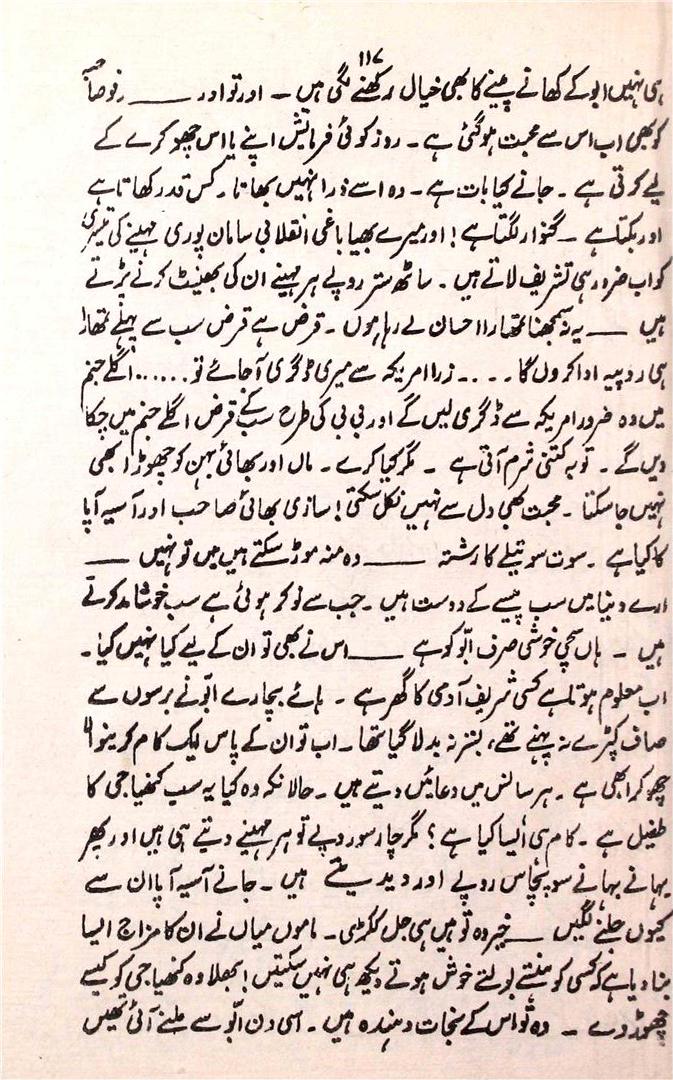 ۱۱۷
ہی نہیں ابو کے کھانے پینے کا بھی خیال رکھنے لگی ہیں ۔ اور تو اور ــــــ رفو صاحب
کو بھی اب اس سے محبت ہو گئی ہے ۔ روز کوئی فرمائش اپنے یا اس چھوکرے کے
لیے کرتی ہے ۔ جانے کیا بات ہے ۔ وہ اسے ذرا نہیں بھاتا ۔ کس قدر کھاتا ہے
اور بکتا ہے ۔ گنوار لگتا ہے ! اور میرے بھیا باغی انقلابی سامان پوری مہینے کی تیسری
کو اب ضرور ہی تشریف لاتے ہیں ۔ ساٹھ ستر روپے ہر مہینے ان کی بھینٹ کرنے پڑتے
ہیں ــــــ یہ نہ سمجھنا تمہارا احسان لے رہا ہوں ۔ قرض ہے قرض سب سے پہلے تمھارا
ہی روپیہ ادا کروں گا ۔ ۔ ۔ ۔ زرا امریکہ سے میری ڈگری آ جائے تو ...... اگلے جنم
میں وہ ضرور امریکہ سے ڈگری لیں گے اور بی بی کی طرح سب کے قرض اگلے جنم میں چکا
دیں گے ۔ توبہ کتنی شرم آتی ہے ۔ مگر کیا کرے ۔ ماں اور بھائی بہن کو چھوڑا بھی
نہیں جا سکتا ۔ محبت بھی دل سے نہیں نکل سکتی ! سازی بھائی صاحب اور آسیہ آپا
کا کیا ہے ۔ سوت سوتیلے کا رشتہ ــــــ وہ منہ موڑ سکتے ہیں میں تو نہیں ــــــ
ارے دنیا میں سب پیسے کے دوست ہیں ۔ جب سے نوکر ہوئی ہے سب خوشامد کرتے
ہیں ۔ ہاں سچی خوشی صرف ابّو کو ہے ــــــ اس نے بھی تو ان کے لیے کیا نہیں کیا ۔
اب معلوم ہوتا ہے کسی شریف آدمی کا گھر ہے ۔ ہائے بچارے ابّو نے برسوں سے
صاف کپڑے نہ پہنے تھے ، بستر نہ بدلا گیا تھا ۔ اب تو ان کے پاس ایک کام کرینوالا
چھوکرا بھی ہے ۔ ہر سانس میں دعائیں دیتے ہیں ۔ حالانکہ وہ کیا یہ سب کنھیا جی کا
طفیل ہے ۔ کام ہی ایسا کیا ہے ؟ مگر چار سو روپے تو ہر مہینے دیتے ہی ہیں اور پھر
بہانے بہانے سو پچاس روپے اور دیدیتے ہیں ۔ جانے آسیہ آپا ان سے
کیوں جلنے لگیں ــــــ خیر وہ تو ہیں ہی جل ککڑی ۔ ماموں میاں نے ان کا مزاج ایسا
بنا دیا ہے کہ کسی کو ہنستے بولتے خوش ہوتے دیکھ ہی نہیں سکتیں ! بھلا وہ کنھیا جی کو کیسے
چھوڑ دے ۔ وہ تو اس کے نجات دہندہ ہیں ۔ اسی دن ابّو سے ملنے آئی تھیں